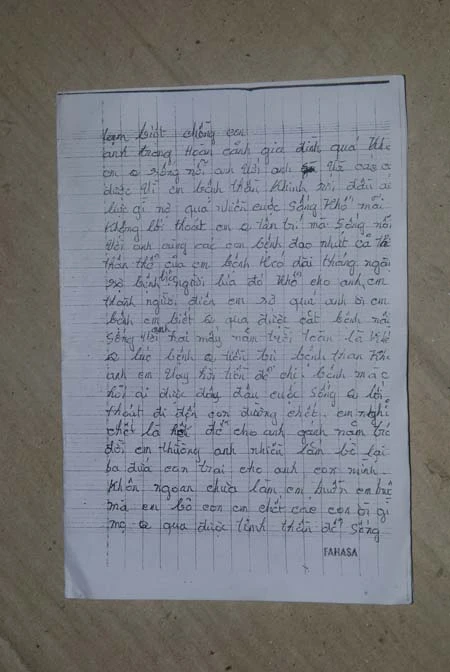 tạm biệt chồng con
anh trong hoàn cảnh gia đình quá khổ
em sống nổi anh với anh và các
được vì em bệnh thần kinh rồi đầu
lúc gì nợ quá nhiều cuộc sống khổ mãi
không lối thoát em tâm trí mà sống nổi
với anh cùng các con bệnh đao nhứt cả
thân thể của em bệnh kéo dài tháng ngày
sợ bệnh người lúa đó khổ cho anh em
thành người điên em sợ quá anh ơi em
bệnh em biết qua được cắt bệnh nài
sống với anh hai mấy năm trời toàn là
lúc bệnh tiền trị bệnh than khi
anh em vay hỏi tiền để chi bệnh mắc
hỏi ai được đây đâu cuộc sống lối
thoát đi đến con đường chết. em nghĩ
chết là để cho anh gánh nắm
đời em thương anh nhiều lắm bỏ lại
ba đứa con trai cho anh con mình
khôn ngoan chưa lắm em buồn em
mà em bỏ con em chết các con ơi gì
mạ qua được tinh thần để sống
FAHASA